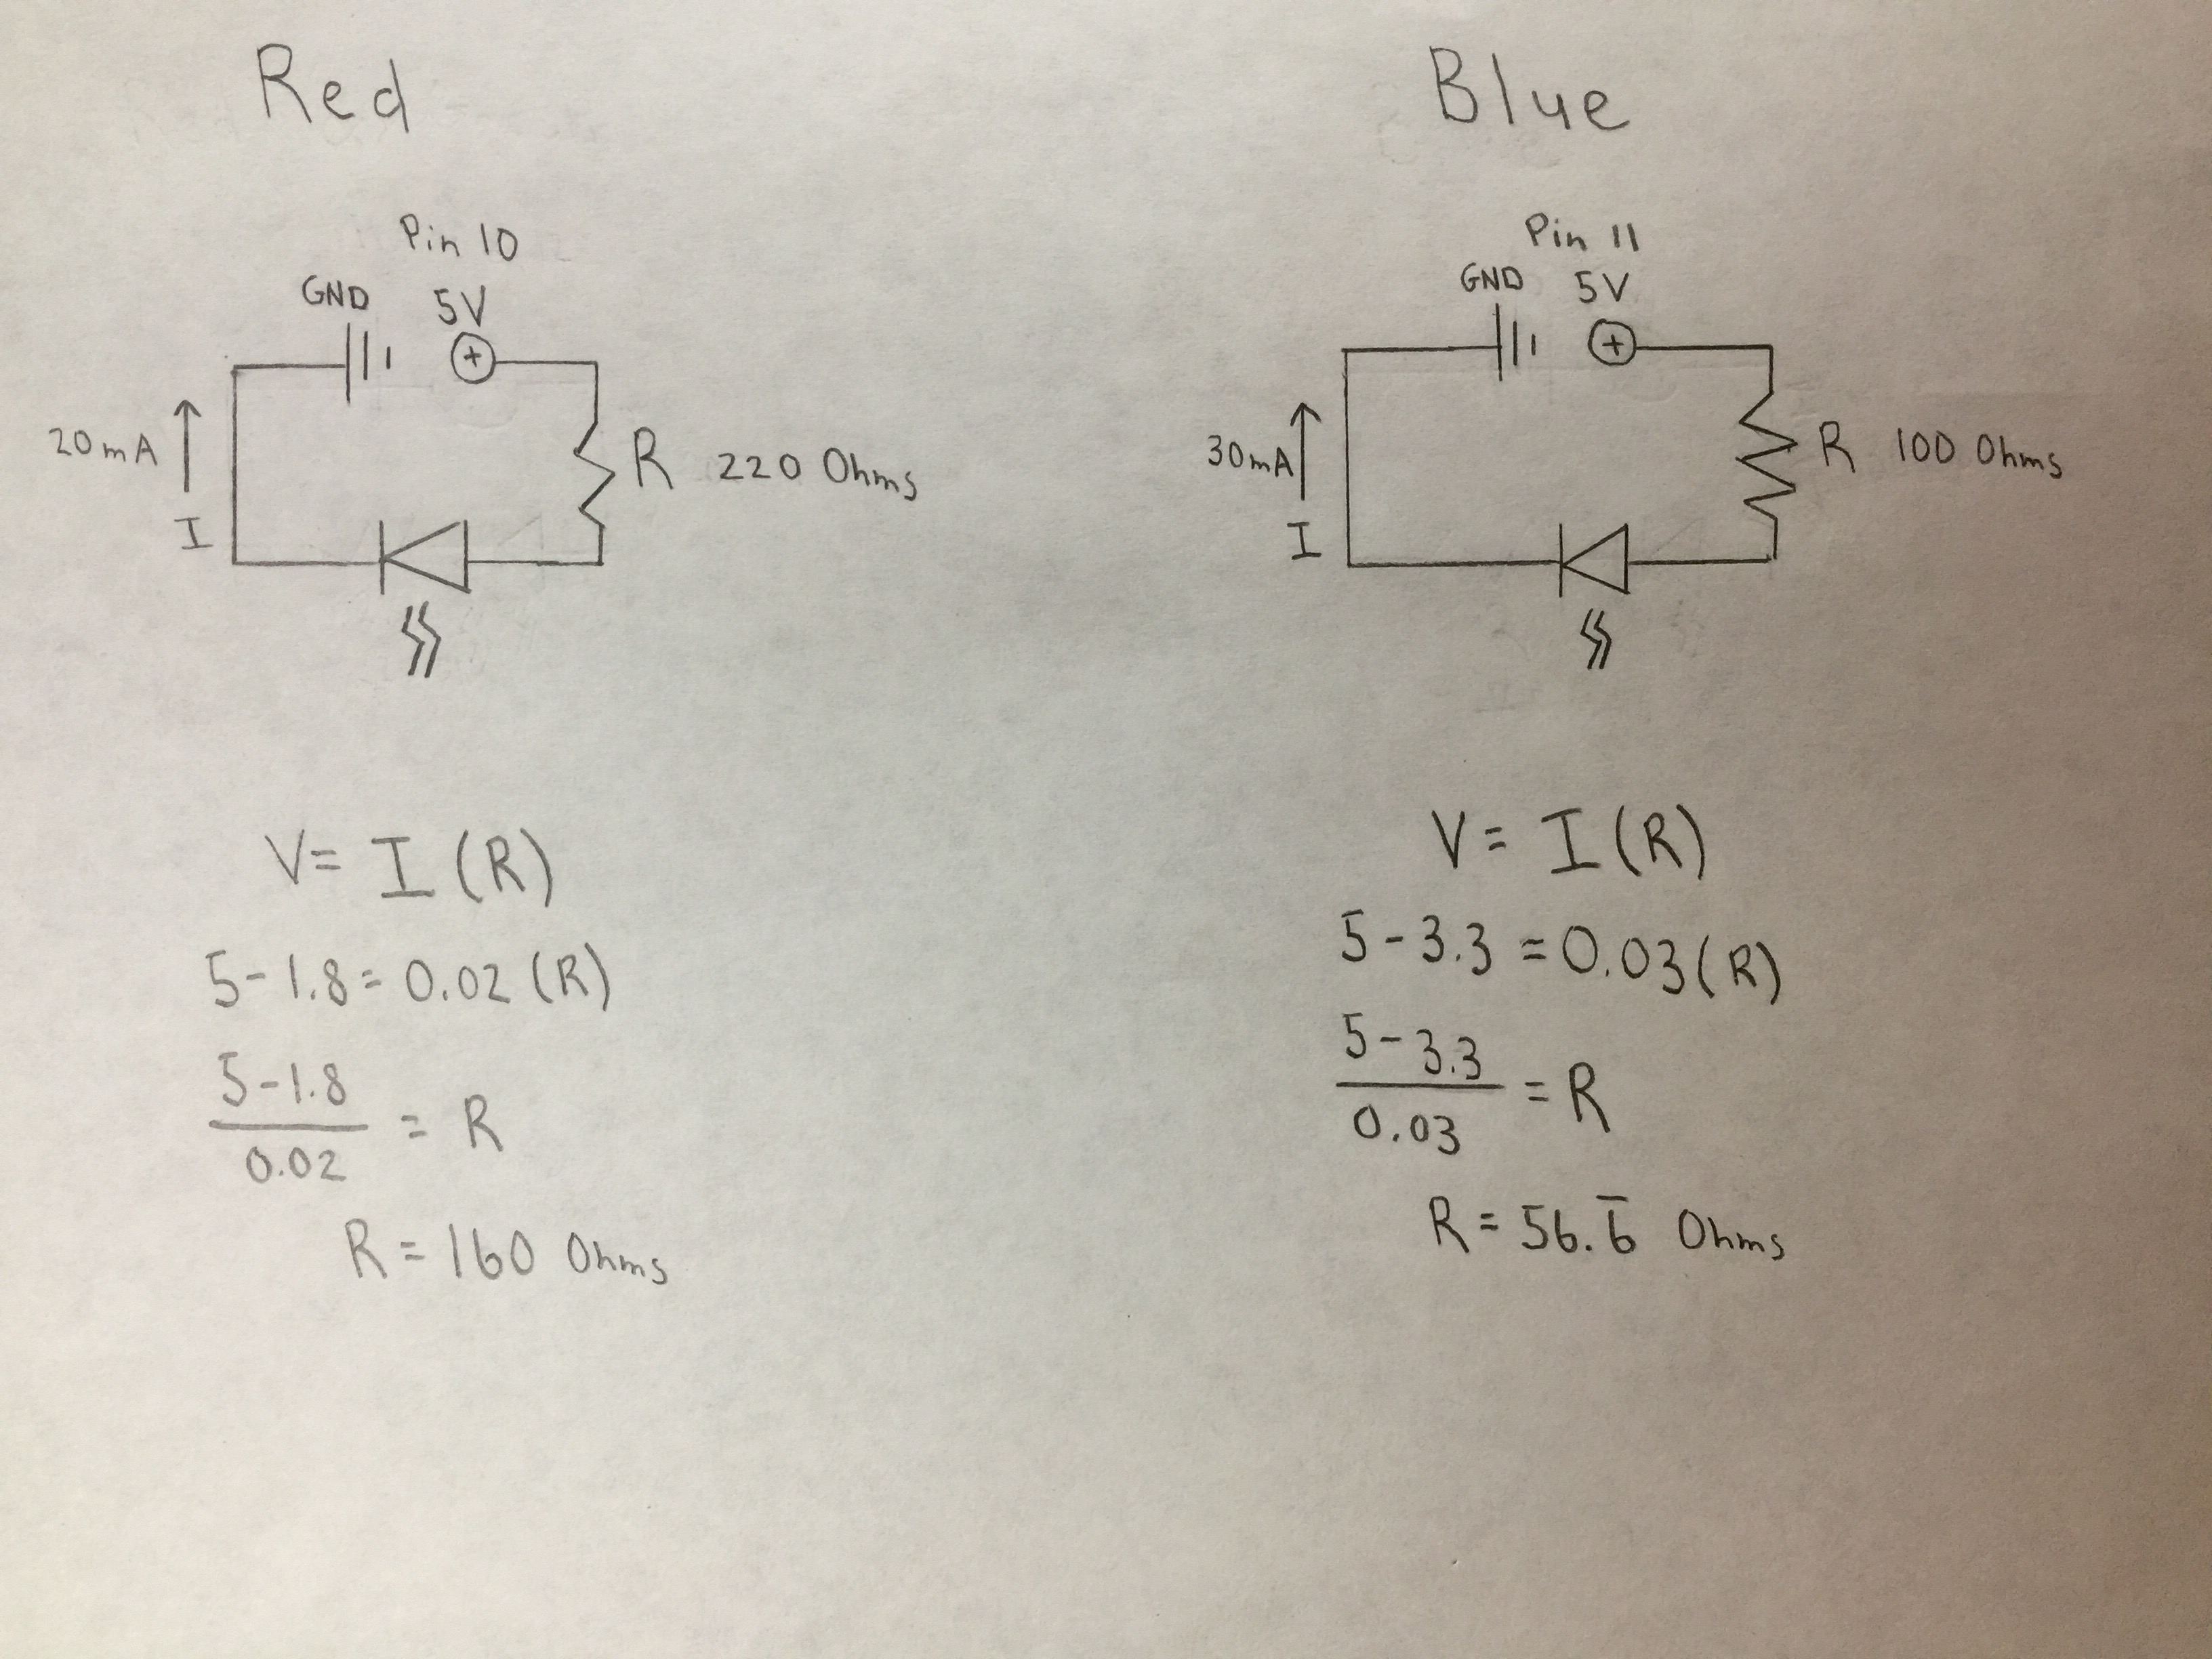 Red
Pin 10
GND 5V
20mA
I
R 220 Ohms
V= I (R)
5-1.8= 0.02 (R)
5-1.8
0.02
= R
R = 160 Ohms
Blue
Pin 11
GND 5V
30mA
I
R 100 Ohms
V= I (R)
5-3.3 = 0.03 (R)
5-3.3
0.03
= R
R= 56.6̅ Ohms